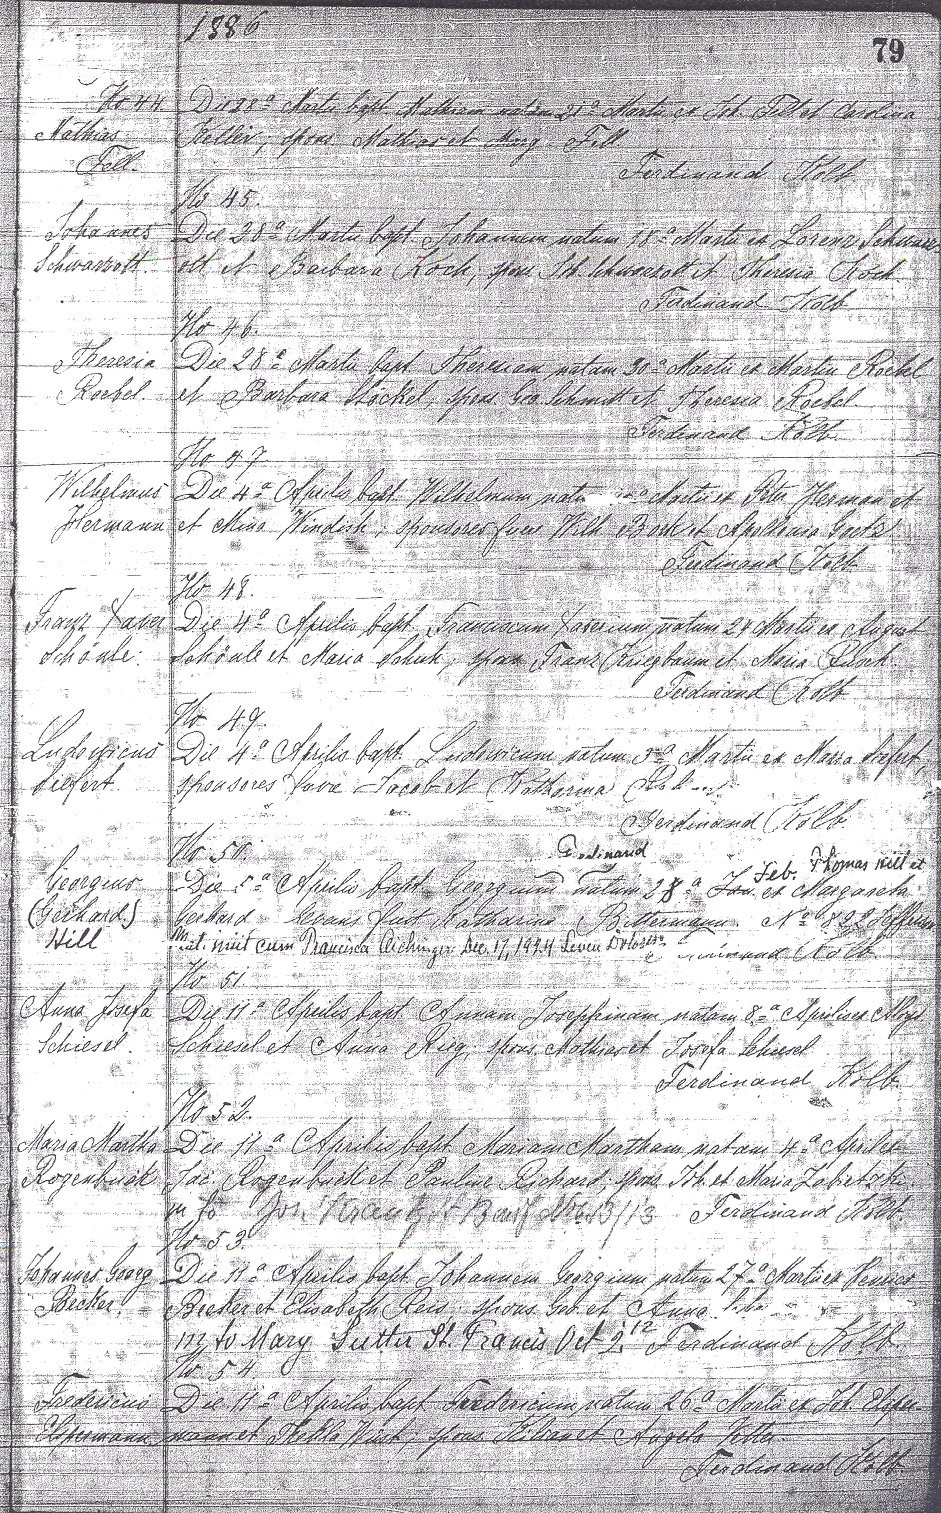 1886
79
No 44
Mathias
Fell.
Die 28a Martii bapt. Mathiam natum 21a Martii ex Joh. Fell et Carolina
Keller, spons. Mathias et Fell
Ferdinand Kolb
No 45.
Johannes
Schwarzott.
Die 28a Martii bapt. Johannem natum 18a Martii ex Lorenz Schwarz-
ott et Barbara Koch, spons. Joh. Schwarzott et Theresia Koch.
Ferdinand Kolb
No 46.
Theresia
Roebel.
Die 28a Martii bapt. Theresiam natam 20a Martii ex Martin Roebel
et Barbara Stöckel, spons. Geo. Schmitt et Theresia Roebel.
Ferdinand Kolb.
No 47
Wilhelmus
Hermann
Die 4a Aprilis bapt. Wilhelmum Martii ex Peter Herman et
et Mina Windish; sponsores fuere Wilh. et Apollonia Goetz
Ferdinand Kolb.
No 48.
Franz Xaver
Schönle.
Die 4a Aprilis bapt. Franciscum Xaverium natum 24 Martii ex August
Schönle et Maria; spons. Franz Kriegbaum et Maria
Ferdinand Kolb
No 49.
Ludovicus
Siefert.
Die 4a Aprilis bapt. Ludovicum natum Martii ex Siefert,
sponsores fuere Jacob et Katharina
Ferdinand Kolb.
No 50.
Georgius
(Gerhard)
Hill
Ferdinand
Feb. Thomas Hill et
Die 5a Aprilis bapt. Georgium natum 28a Jan. ex Margareta
Gerhard. Levans fuit Katharina Bittermann. No 822 Jefferson
Mat. iniit cum Francisca Aichinger Dec. 17, 1924 Seven Dolors
Kolb.
No 51.
Anna Josefa
Schiesel.
Die 11a Aprilis bapt. Annam Josephinam natam 8a Aprilis ex Aloys
Schiesel et Anna Rieg, spons. Mathias et Josefa Schiesel
Ferdinand Kolb.
No 52.
Maria Martha
Rogenbuck
Die 11a Aprilis bapt. Mariam Martham natam 4a Aprilis ex
Jac. Rogenbuck et Pauline Richard, spons. Joh. et Maria
m to Jos. Krantz St Bonif. Nov 13/13 Ferdinand Kolb.
No 53.
Johannes Georg
Becker.
Die 11a Aprilis bapt. Johannem Georgium natum 27a Martii ex Henrico
Becker et Elisabeth Reis. spons. Geo. et Anna
m to Mary Sutter St. Francis Oct 2. 12 Ferdinand Kolb.
No 54.
Fredericus
Elspermann
Die 11a Aprilis bapt. Fredericum natum 26a Martii ex Joh. Elsper-
mann et Thekla; spons. Kilian et Angela
Ferdinand Kolb.